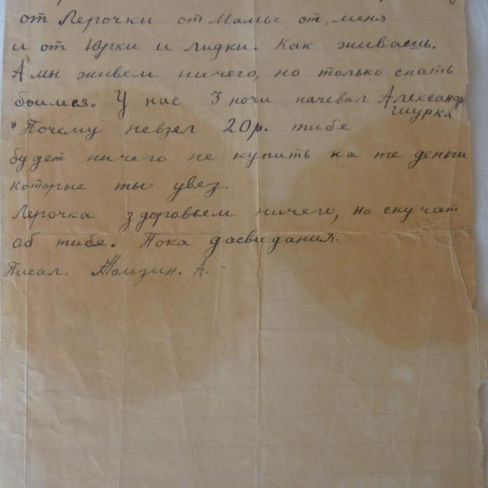 от Лерочки от Мамы от меня
и от Юрки и Лидки. Как живаешь.
А мы живем ничего, но только спать
боимся. У нас 3 ночи начевал Александр
Шурка
"Почему невзел 20 р. тибе
будет ничего не купить на те деньги
которые ты увез.
Лерочка здоровьем ничего, но скучат
об тибе. Пока досвидания.
Писал. А.